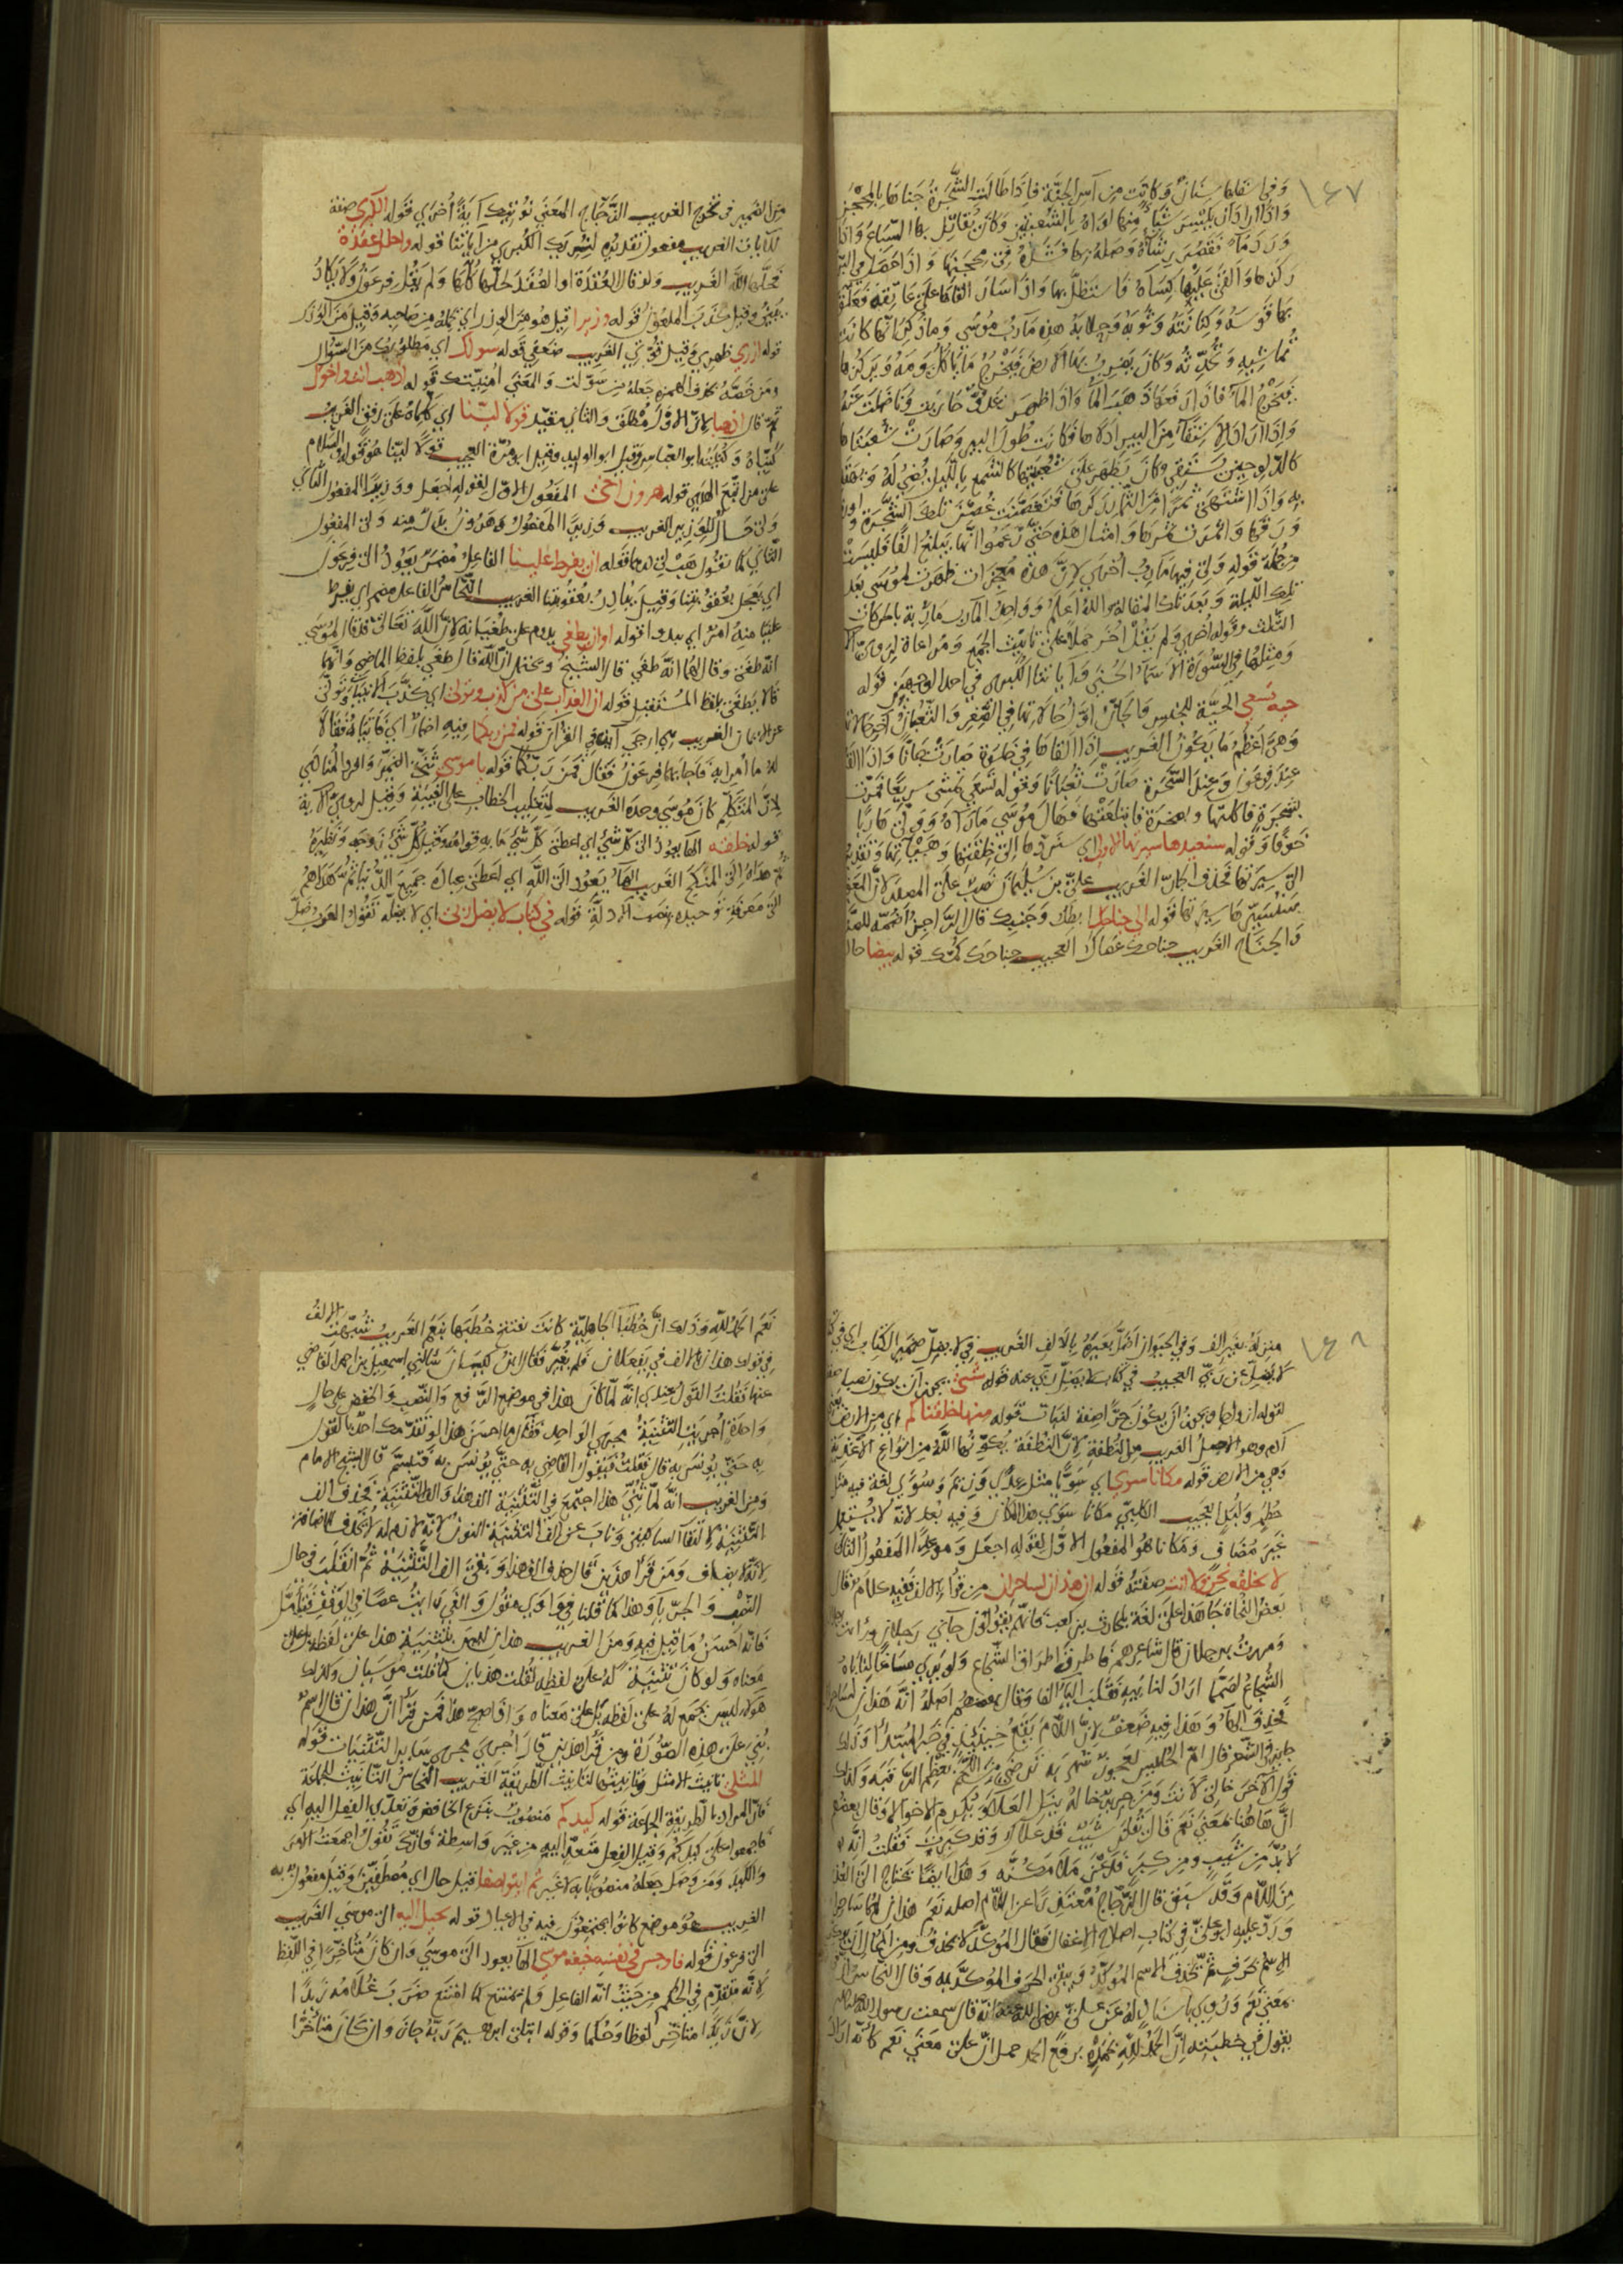 ١٤٧
وفي اسفلها سنان وكانت من آس الجنة فاذا طالت الشجرة جناها بالمحجن
واذا اراد ان يكسر شيأ منها لواه بالشعبتين وكان يقاتل بها السباع واذا
ورد ماء فقصر رشاؤه وصله بها
ركزها والقى عليها كساه فاستظل بها واذا سار القاها على عاتقه فعلق
بها قوسه وكنانته وثوبه وحلابه هذه مآرب موسى وما ذكر انها كانت
تماشيه وتحدثه وكان يضرب بها الارض فيخرج ما ياكل يومه ويركزها
فيخرج الماء فاذا رفعها ذهب الماء واذا ظهر عدو حاربت وناضلت عنه
واذا اراد الاستقاء من البير ادلاها فكانت طول البير وصارت شعبتاها
كالدلو حين يستقي وكان يظهر على شعبتيها كالشمع بالليل تضي له ويهتدي
به واذا اشتهى ثمرا من الثمار ركزها فتغصنت غصن تلك الشجرة
ورقها واثمرت ثمرها وامثال هذه حتى زعموا انها تبلغ الفا فليست
من جملة قوله ولي فيها مآرب اخرى لان هذه معجزات ظهرت لموسى بعد
تلك الليلة وبعد تلك المقالة والله اعلم وواحد المآرب ماربة بالحركات
الثلث وقوله اخرى ولم يقل اخر حملا على تانيث الجمع ومراعاة لروس الآي
ومثلها في السورة الاسماء الحسنى وآياتنا الكبرى في احد الوجهين قوله
حية تسعى الحية للجنس والجان اول حالاتها في الصغر والثعبان آخر حالاتها
وهي اعظم ما يكون الغريب اذا القاها في خلوة صارت جانا واذا القاها
عند فرعون وعند السحرة صارت ثعبانا وقوله تسعى تمشي سريعا فمرت
بشجرة فاكلتها وبصخرة فابتلعتها فهال موسى ما رآه وولى هاربا
خوفا وقوله سنعيدها سيرتها الاولى اي سنردها الى خلقتها وهيأتها وتقديره
الى سيرتها فحذف الجار الغريب علي بن سليمان نصب على المصدر لان المعنى
سنسيرها سيرتها قوله الى جناحك ابطك وجنبك قال الزجاج اضممه للعضد
والجناح الغريب جناحك عصاك العجيب جناحك كمك قوله بيضا حال
من الضمير في تخرج الغريب الزجاج المعنى نؤتيك آية اخرى قوله الكبرى صفة
للآيات الغريب مفعول تقديره لنريك الكبرى من آياتنا قوله واحلل عقدة
فحلها الله الغريب ولو قال العقدة او العقد لحلها كلها ولم يقل فرعون ولا يكاد
يبين وقيل كذب الملعون قوله وزيرا قيل هو من الوزر اي يحمله من صاحبه وقيل من الوزر
قوله ازري ظهري وقيل قوتي الغريب ضعفي قوله سولك اي مطلوبك من السؤال
ومن خصه بحذف الهمزة جعله من سولت والمعنى امنيتك قوله اذهب انت واخوك
ثم قال اذهبا لان الاول مطلق والثاني مقيد قولا لينا اي كلماه على رفق الغريب
كنياه وكنيته ابو العباس وقيل ابو الوليد وقيل ابو مرة العجيب قولا لينا هو قوله والسلام
على من اتبع الهدى قوله هرون اخي المفعول الاول لقوله اجعل ووزيرا المفعول الثاني
ولي حال للوزير الغريب وزيرا المفعول وهرون بدل منه ولي المفعول
الثاني كما تقول هب لي درهما قوله ان يفرط علينا الفاعل مضمر يعود الى فرعون
اي يعجل بعقوبتنا وقيل يبادر بعقوبتنا الغريب النحاس الفاعل مضمر اي يفرط
علينا منه امر اي يبدو قوله او ان يطغى يدوم على طغيانه لان الله تعالى قد قال لموسى
انه طغى وقال لهما انه طغى قال الشيخ ويحتمل ان الله قال طغى بلفظ الماضي وانهما
قالا يطغى بلفظ المستقبل قوله ان العذاب على من كذب وتولى اي كذب الانبياء وتولى
عن الايمان الغريب هي ارجى آية في القرآن قوله فمن ربكما فيه اضمار اي فأتياه فقالا
له ما امرا به فاجابهما فرعون فقال فمن ربكما قوله يا موسى ثنى الضمير وافرد المنادى
لان المتكلم كان موسى وحده الغريب لتغليب الخطاب على الغيبة وقيل لروس الآية
قوله خلقه الهاء يعود الى كل شيء اي اعطى كل شيء ما به قوامه وقيل كل شيء زوجه ونظيره
ثم هداه الى المنكح الغريب الهاء يعود الى الله اي اعطى عباده جميع الدنيا ثم هداهم
الى معرفة توحيده بنصب الادلة قوله في كتاب لا يضل ربي اي لا يضله تقول العرب ضل
١٤٨
منزله بغير الف وفي الحيوان اضل بعيره بالالف الغريب
لا يضل عن ربي العجيب في كتاب لا يضل ربي عنه قوله شتى يجوز ان يكون نصبا صفة
لقوله ازواجا ويجوز ان يكون جرا صفة لنبات قوله منها خلقناكم اي من الارض
آدم وهو الاصل الغريب من النطفة لان النطفة يكونها الله من انواع الاغذية
وهي من الارض قوله مكانا سوى اي سوا مثل عدل وزيم وسوى لغة فيه مثل
حطم ولبد العجيب الكلبي مكانا سوى هذا المكان وفيه بعد لانه لا يستعمل
غير مضاف ومكانا هو المفعول الاول لقوله اجعل وموعدا المفعول الثاني
لا نخلفه نحن ولا انت صفته قوله ان هذان لساحران من قرا بالالف ففيه كلام قال
بعض النحاة جا هذا على لغة بلحارث بن كعب فانهم يقولون جاني رجلان ورايت
ومررت برجلان قال شاعرهم فاطرق اطراق الشجاع ولو يرى مساغا لناباه
الشجاع لصمما اراد لنابيه فقلب اليا الفا وقال بعضهم اصله انه هذان لساحران
فحذف الهاء وهذا فيه ضعف لان اللام يقع حينئذ في خبر المبتدأ وذلك
جايز في الشعر قال ام الحليس لعجوز شهربه ترضى من اللحم بعظم الرقبه وكذلك
قول الآخر خالي لانت ومن جرير خاله ينل العلا ويكرم الاخوالا وقال بعضهم
ان هاهنا بمعنى نعم قال ويقلن شيب قد علاك وقد كبرت فقلت انه
لا بد من شيب ومن كبر
من اللام وقد سبق قال الزجاج معتذرا عن اللام اصله نعم هذان لهما ساحران
ورد عليه ابو علي في كتاب اصلاح الاغفال فقال المؤكد لا يحذف ومن المحال ان يؤكد
الاسم بحرف ثم يحذف الاسم المؤكد ويبقى الحرف المؤكد به وقال النحاس
بمعنى نعم وروى باسناد له عن علي رضي الله عنه انه قال سمعت رسول الله
يقول في خطبته ان الحمد لله نحمده برفع الحمد حمل ان على معنى نعم كأنه اراد
نعم الحمد لله وذلك ان خطبا الجاهلية كانت تفتتح خطبها بنعم الغريب شبهت الالف
في قولك هذان بالالف في يفعلان فلم يغير فقال ابن كيسان سالني اسمعيل بن احمد القاضي
عنها فقلت القول عندي انه لما كان هذا في موضع الرفع والنصب والخفض على حال
واحدة اجريت التثنية مجرى الواحد فقال ما احسن هذا لو تقدمك احد بالقول
به حتى يونس به قال فقلت فيقول القاضي به حتى يونس به فتبسم قال الشيخ الامام
ومن الغريب انه لما ثني هذا اجتمع في التثنية الف هذا والف التثنية فحذف الف
التثنية لالتقاء الساكنين وناب عن الف التثنية النون
لانه لا يضاف ومن قرأ هذين قال حذف الف هذا وبقي الف التثنية ثم انقلبت في حال
النصب والجر ياء وهذا كما قلنا في واوي مقول والفي رايت عصا في الوقف فتأمل
فانه احسن ما قيل فيه ومن الغريب هذان ليس بتثنية هذا على لفظه بل على
معناه ولو كان تثنية له على لفظه لقلت هذيان كما قلت موسيان وكذلك
هولا ليس بجمع له على لفظه بل على معناه واذا صح هذا فمن قرأ ان هذان قال اسم
بني على هذه الصورة ومن قرأ هذين قال اجرى مجرى ساير التثنيات قوله
المثلى تانيث الامثل وتانيثها لتانيث الطريقة الغريب النحاس التانيث للجماعة
فان المراد بالطريقة الجماعة قوله كيدكم منصوب بنزع الخافض وتعدي الفعل اليه اي
فاجمعوا على كيدكم وقيل الفعل متعد اليه من غير واسطة فانك تقول اجمعت الامر
والكيد ومن وصل جعله منصوبا به لا غير ثم ايتوا صفا قيل حال اي مصطفين وقيل مفعول به
الغريب هو موضع كانوا يجتمعون فيه في الاعياد قوله يخيل اليه الى موسى الغريب
الى فرعون قوله فاوجس في نفسه خيفة موسى الهاء يعود الى موسى وان كان متاخرا في اللفظ
لانه متقدم في الحكم من حيث انه الفاعل ولم يمتنع كما امتنع ضرب غلامه زيدا
لان زيدا متاخر لفظا وحكما وقوله ابتلى ابراهيم ربه جاز وان كان متاخرا